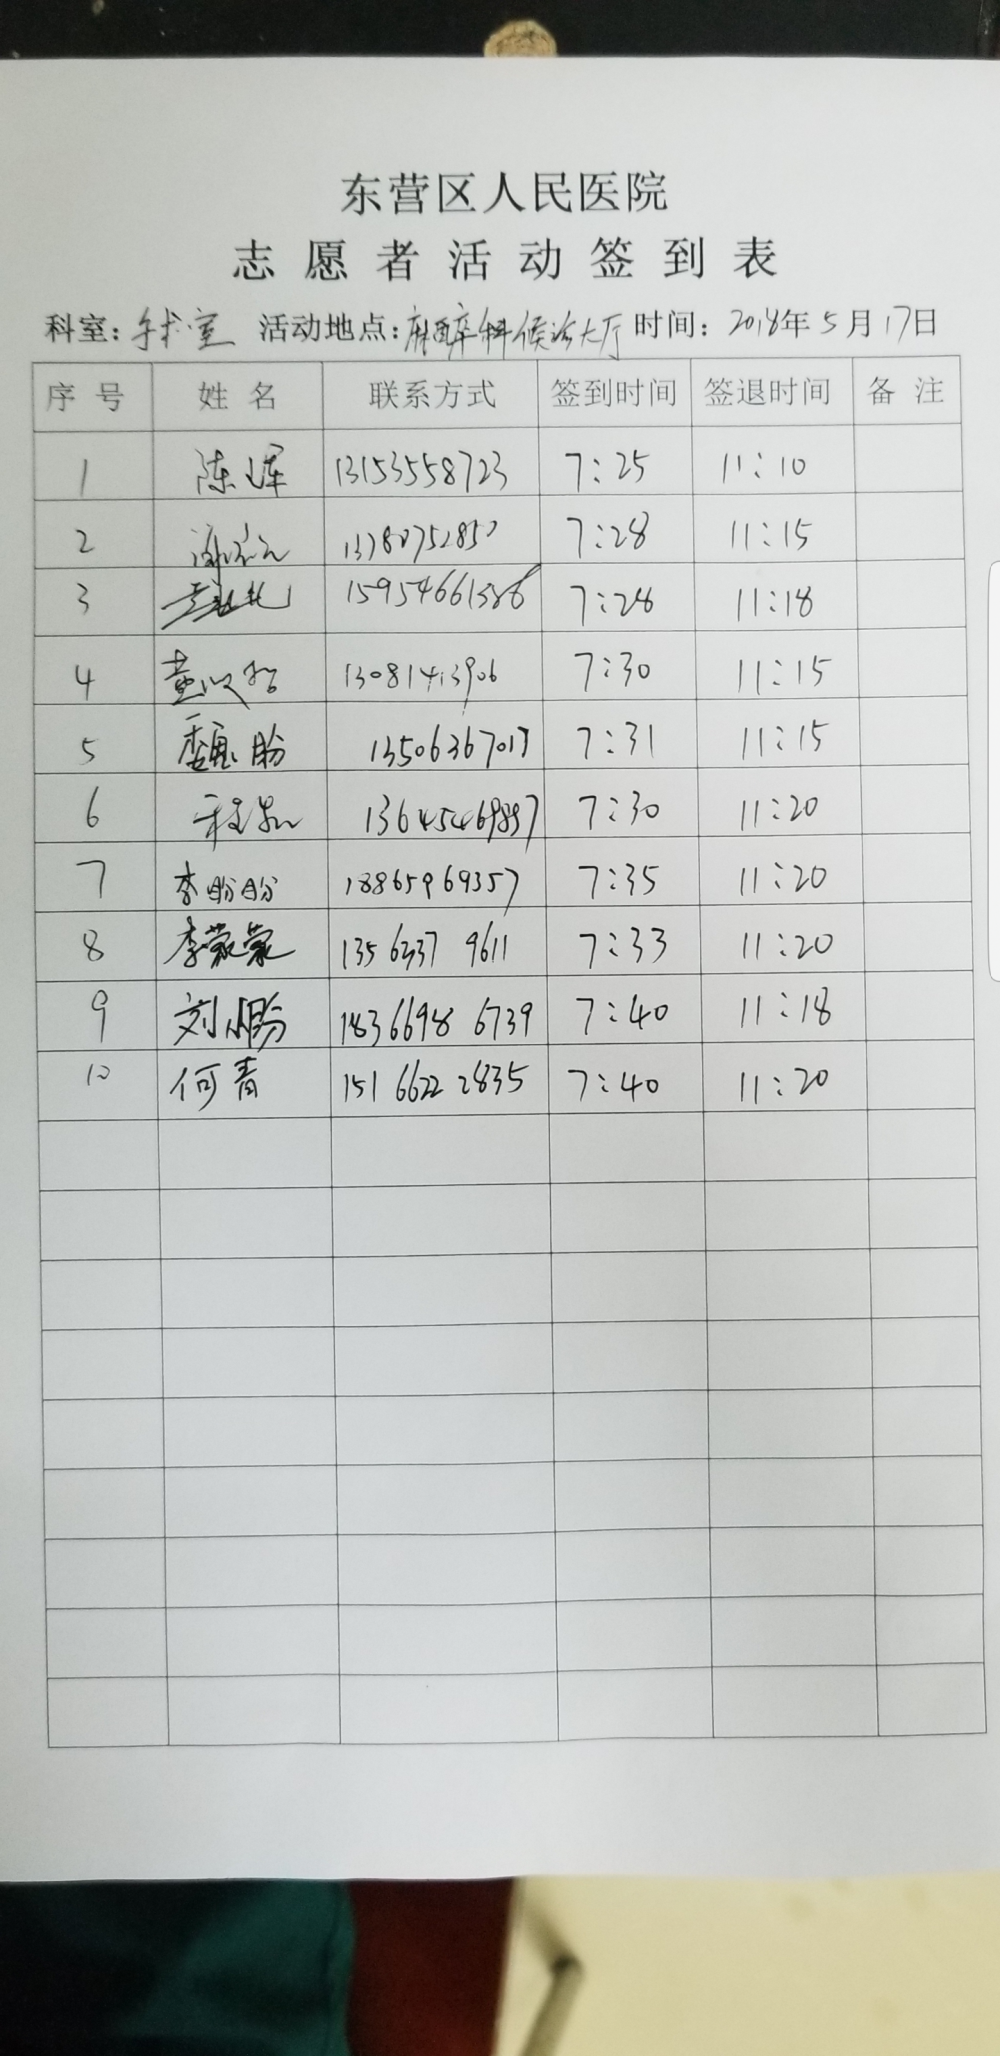 东营区人民医院
志愿者活动签到表
科室：手术室 活动地点：麻醉科候诊大厅 时间：2018年5月17日
序号 姓名 联系方式 签到时间 签退时间 备注
1 陈军 13153558723 7:25 11:10
2 7:28 11:15
3 7:28 11:18
4 黄 7:30 11:15
5 魏盼 13506367017 7:31 11:15
6 程 7:30 11:20
7 李盼盼 18865969357 7:35 11:20
8 李蒙蒙 135 6337 9611 7:33 11:20
9 刘小盼 1836698 6739 7:40 11:18
10 何青 151 6622 2835 7:40 11:20